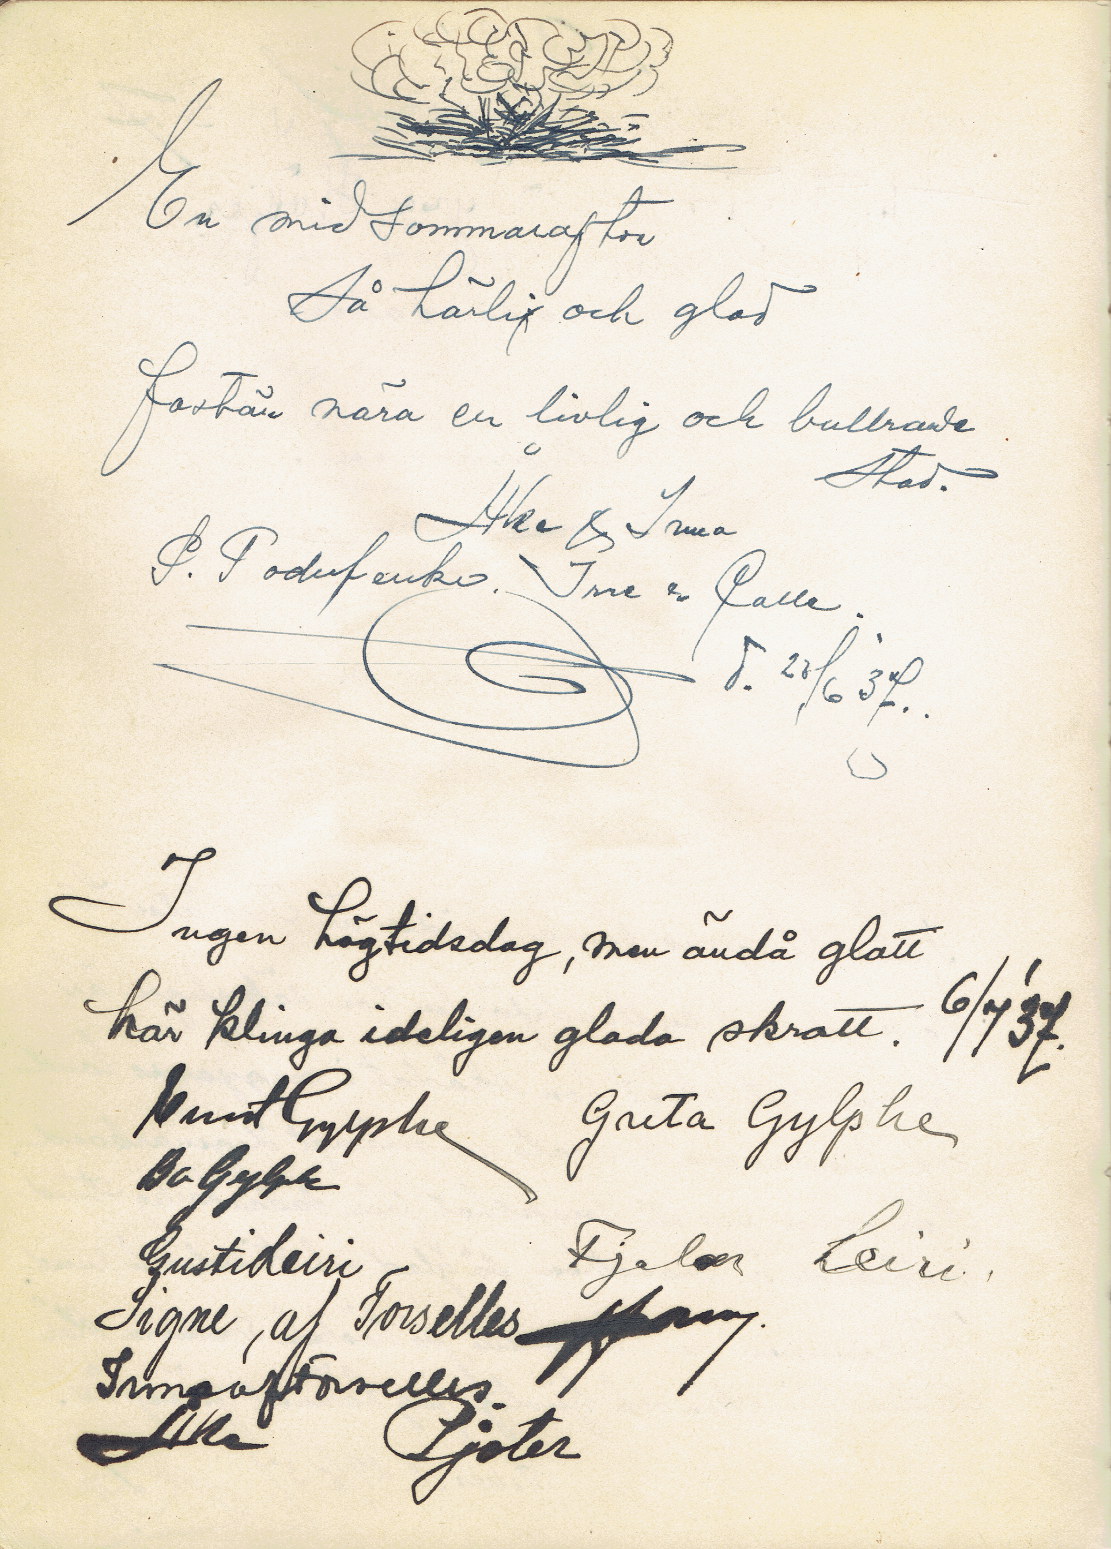 En midsommarafton
Så härlig och glad
fastän nära en livlig och bullrande
stad.
Åke & Irma
P. Irne Palle.
d. 23/6 '37.
Ingen högtidsdag, men ändå glatt
här klinga ideligen glada skratt. 6/7 '37.
Knut Gylphe Greta Gylphe
Bo Gylphe
Gusti Leiri Fjalar Leiri.
Signe af Forselles
Irma af Forselles.
Åke Pjoter